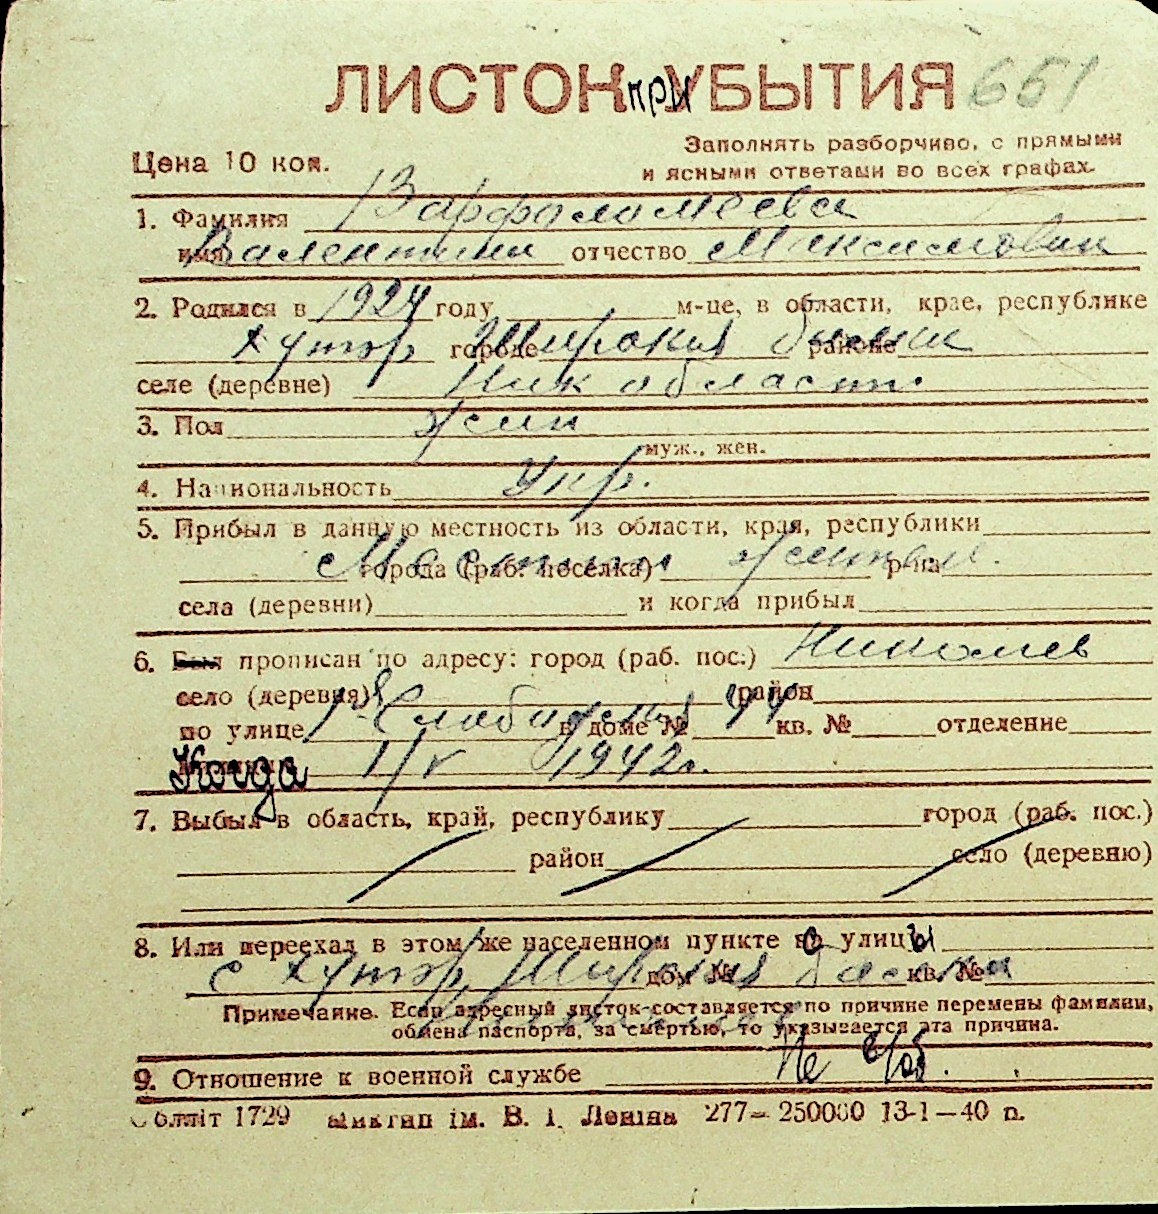 ЛИСТОК при УБЫТИЯ 651
Цена 10 коп.
Заполнять разборчиво, с прямыми
и ясными ответами во всех графах.
1. Фамилия Варфоломеева
имя Валентина отчество Максимовна
2. Родился в 1924 году м-це, в области, крае, республике
хутор городе Широкая балка районе
селе (деревне) Ник области
3. Пол жен
муж., жен.
4. Национальность Укр.
5. Прибыл в данную местность из области, края, республики
Местный жител города (раб. поселка) р-на
села (деревни) и когда прибыл
6. Был прописан по адресу: город (раб. пос.) Николаев
село (деревня) район
по улице 1-я Слободская в доме № 44 кв. № отделение
Когда 1/V 1942г.
7. Выбыл в область, край, республику город (раб. пос.)
район село (деревню)
8. Или переехал в этом же населенном пункте с улицы
с хутор Широкая балка дом № кв. №
Примечание. Если адресный листок составляется по причине перемены фамилии,
обмена паспорта, за смертью, то указывается эта причина.
9. Отношение к военной службе Не
Облліт 1729 ім. В. І. Леніна 277—250000 13-1—40 п.